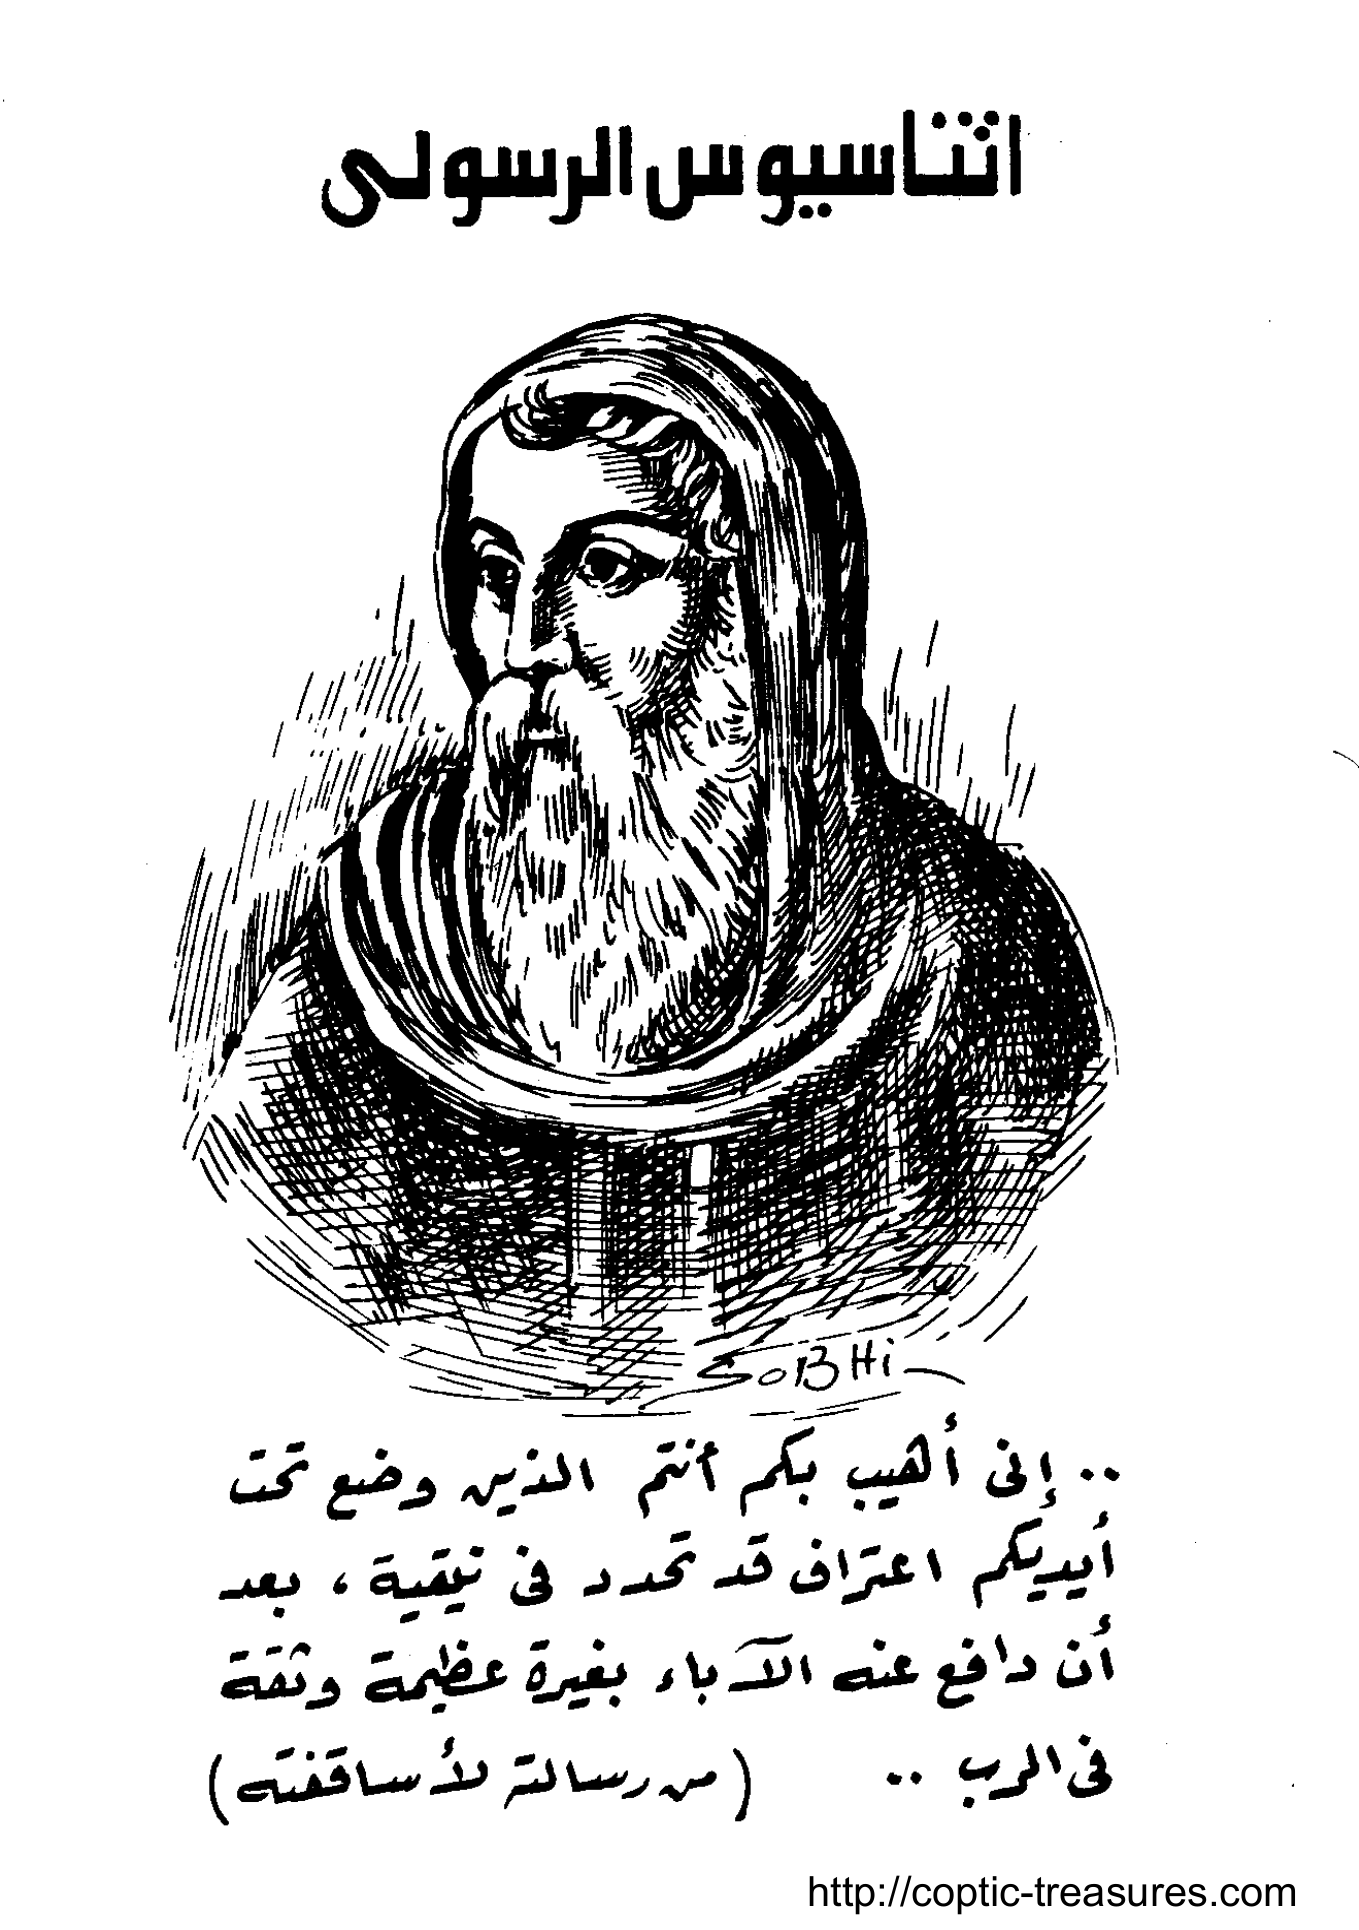 اثناسيوس الرسولى
SOBHi
.. إنى أهيب بكم أنتم الذين وضع تحت
أيديكم اعتراف قد تحدد فى نيقية ، بعد
أن دافع عنه الآباء بغيرة عظيمة وثقة
فى الرب .. (من رسالة لأساقفته)
http://coptic-treasures.com